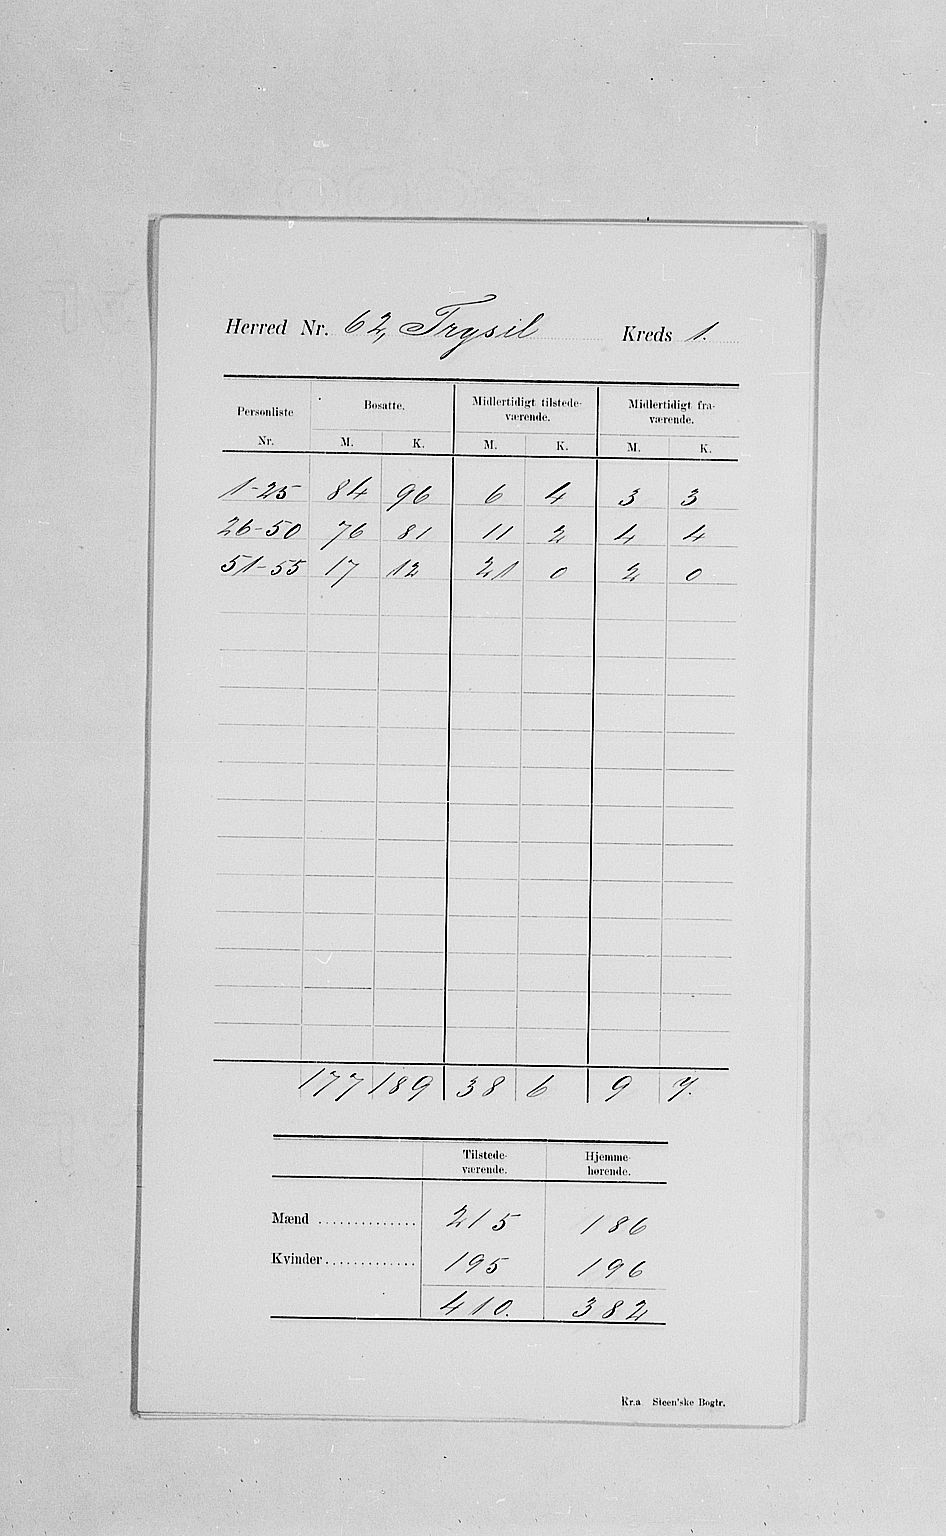 Herred Nr. 62, Trysil Kreds 1.
Personliste Bosatte. Midlertidigt tilstede- Midlertidigt fra-
værende. værende.
Nr. M. K. M. K. M. K.
1-25 84 96 6 4 3 3
26-50 76 81 11 2 4 4
51-55 17 12 21 0 2 0
177 189 38 6 9 7.
Tilstede- Hjemme-
værende. hørende.
Mænd .............. 215 186
Kvinder ............. 195 196
410. 382
Kr.a Steen'ske Bogtr.